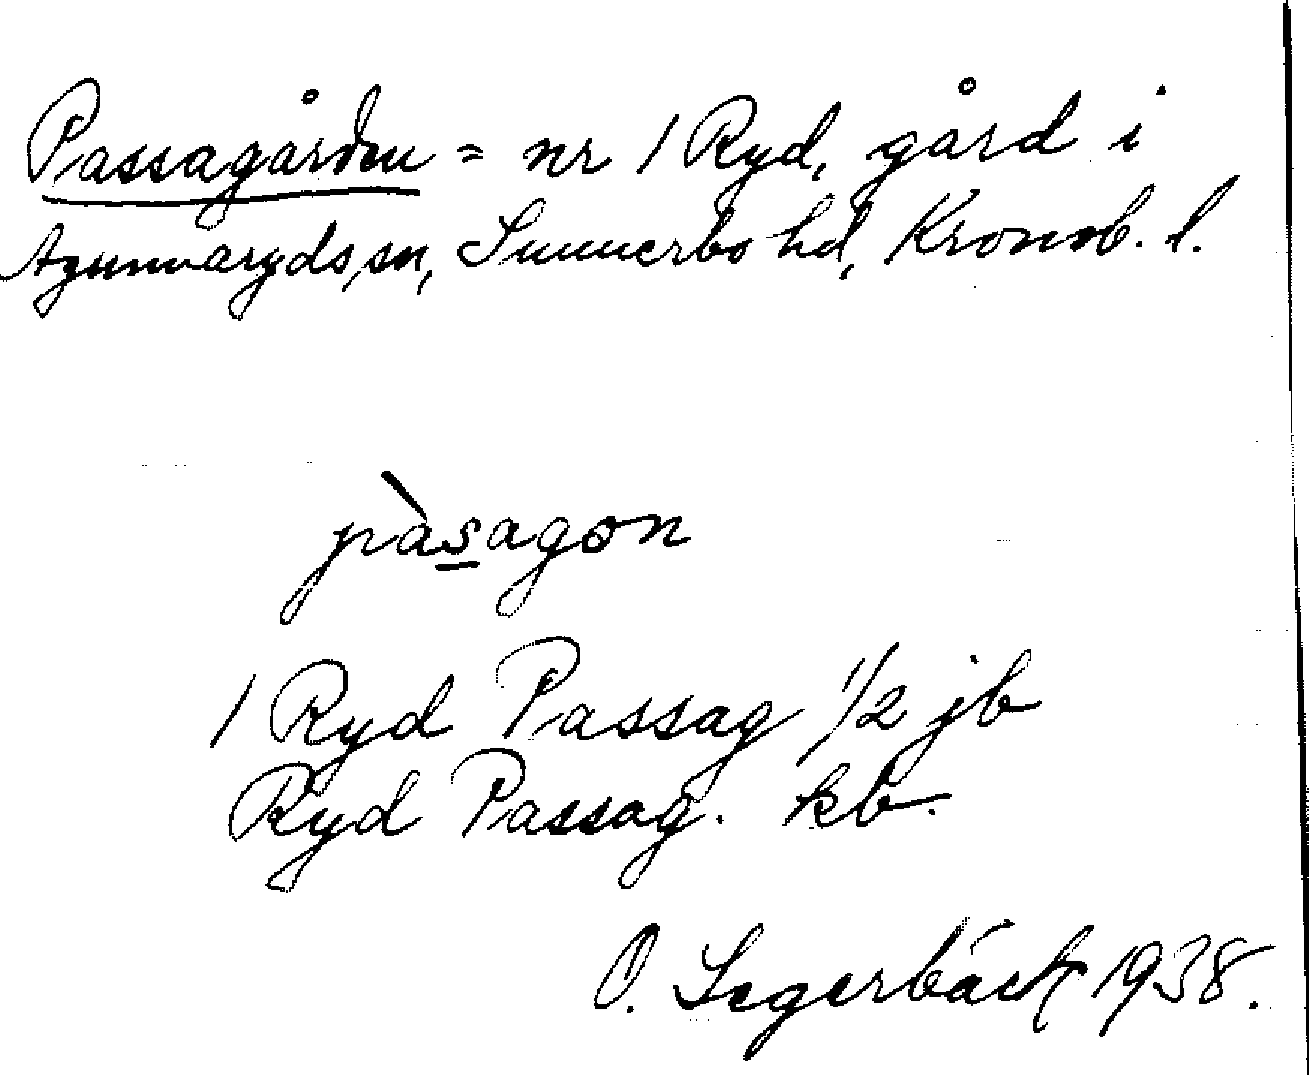 Passagården = nr 1 Ryd, gård i
Agunnaryds sn, Sunnerbo hd, Kronob. l.
pàsagon
1 Ryd Passag 1/2 jb
Ryd Passag. kb.
O. Segerbäck 1938.